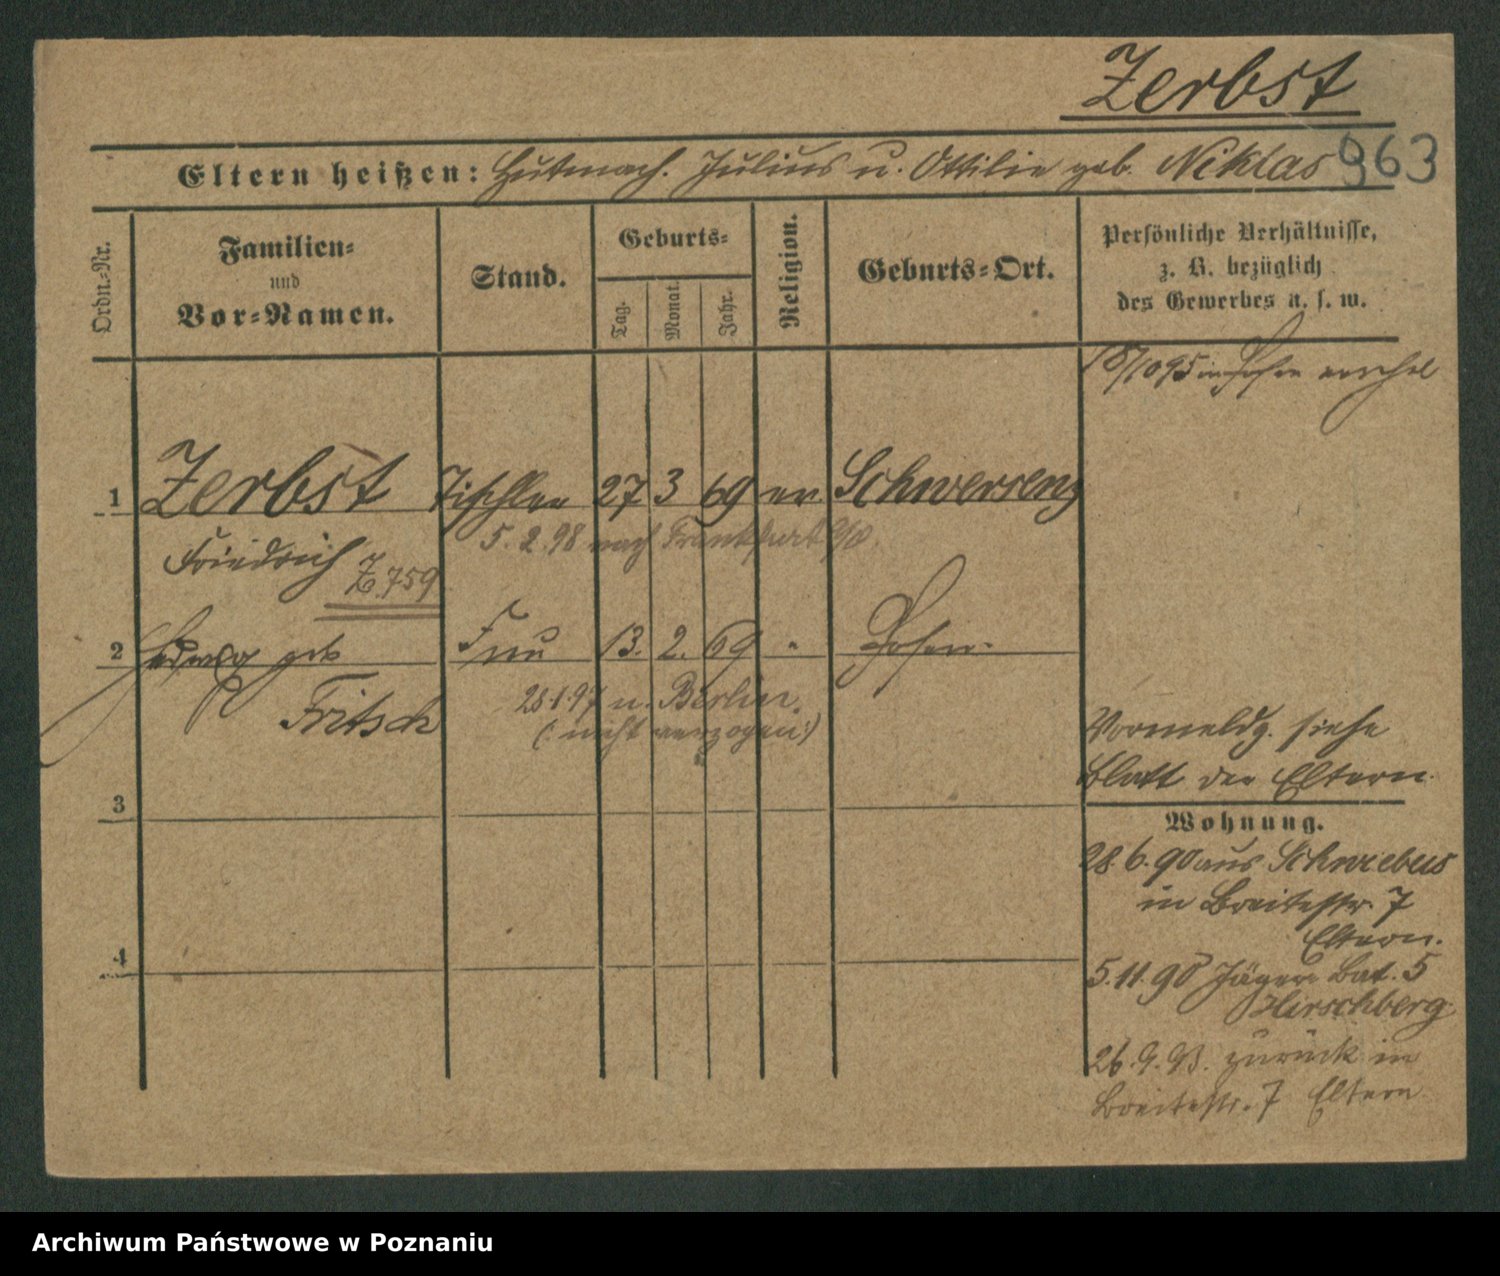 Zerbst
Eltern heißen: Hutmach. Julius u. Ottilie geb. Niklas 963
Ordn.-Nr.
Familien-
und
Vor-Namen.
Stand.
Geburts-
Tag.
Monat.
Jahr.
Religion.
Geburts-Ort.
Persönliche Verhältnisse,
z. B. bezüglich
des Gewerbes u. s. w.
18/10 95 in Posen
1 Zerbst Tischler 27 3 69 ev. Schwersenz
5.2.98 nach Frankfurt a/O.
Friedrich Z. 759
2 Hedwig geb Frau 13. 2. 69 " Posen
Fritsch
28.1.97 n. Berlin.
(: nicht verzogen :)
Vormeldg. siehe
Blatt der Eltern.
3
Wohnung.
28.6.90 aus Schwiebus
in Breitestr. 7
Eltern.
4
5.11.90 Jäger Bat. 5
Hirschberg
26.9.93. zurück in
Breitestr. 7 Eltern
Archiwum Państwowe w Poznaniu